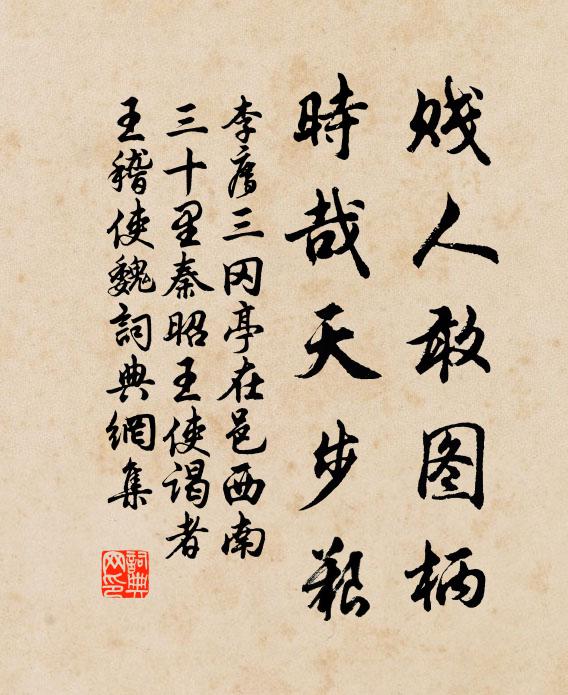 贱人敢图柄
時哉天步艱
李廌三冈亭在邑西南
三十里秦昭王使谒者
王稽使魏詞典網集
詞典网印